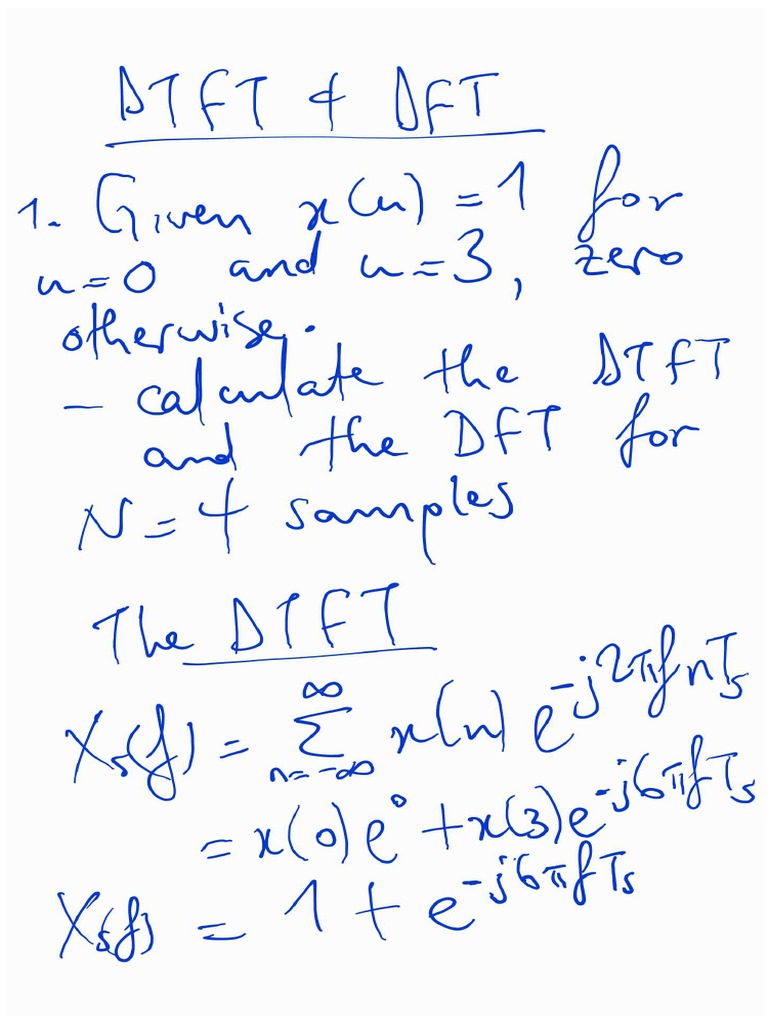 DTFT & DFT
1. Given x(n) = 1 for
n=0 and n=3, zero
otherwise.
- calculate the DTFT
and the DFT for
N=4 samples
The DTFT
Xs(f) = ∑_{n=-∞}^{∞} x(n) e^{-j2πfnTs}
= x(0)e^0 + x(3)e^{-j6πfTs}
Xs(f) = 1 + e^{-j6πfTs}